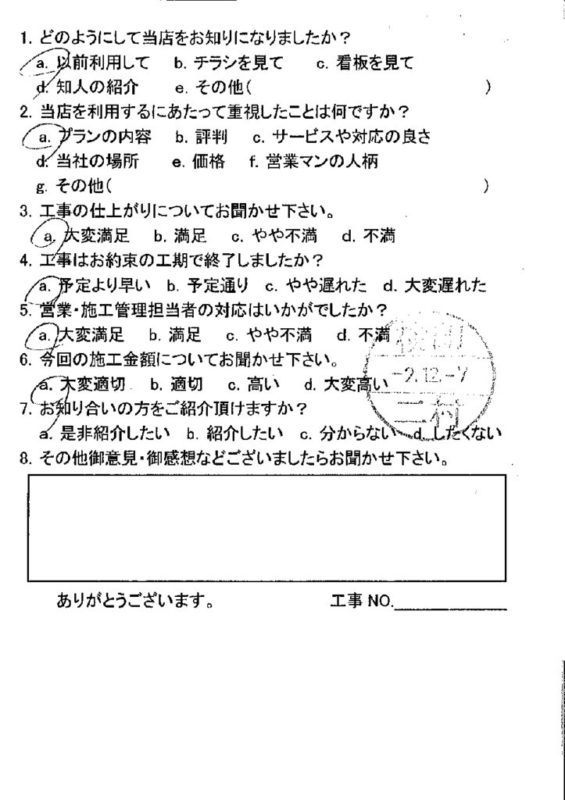 1. どのようにして当店をお知りになりましたか？
a. 以前利用して b. チラシを見て c. 看板を見て
d. 知人の紹介 e. その他( )
2. 当店を利用するにあたって重視したことは何ですか？
a. プランの内容 b. 評判 c. サービスや対応の良さ
d. 当社の場所 e. 価格 f. 営業マンの人柄
g. その他( )
3. 工事の仕上がりについてお聞かせ下さい。
a. 大変満足 b. 満足 c. やや不満 d. 不満
4. 工事はお約束の工期で終了しましたか？
a. 予定より早い b. 予定通り c. やや遅れた d. 大変遅れた
5. 営業・施工管理担当者の対応はいかがでしたか？
a. 大変満足 b. 満足 c. やや不満 d. 不満
検印
6. 今回の施工金額についてお聞かせ下さい。
a. 大変適切 b. 適切 c. 高い d. 大変高い
-2.12.-7
7. お知り合いの方をご紹介頂けますか？
a. 是非紹介したい b. 紹介したい c. 分からない d. したくない
二村
8. その他御意見・御感想などございましたらお聞かせ下さい。
ありがとうございます。 工事 NO.